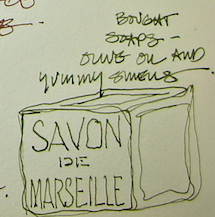 BOUGHT
SOAPS —
OLIVE OIL AND
YUMMY SMELLS
SAVON
DE
MARSEILLE